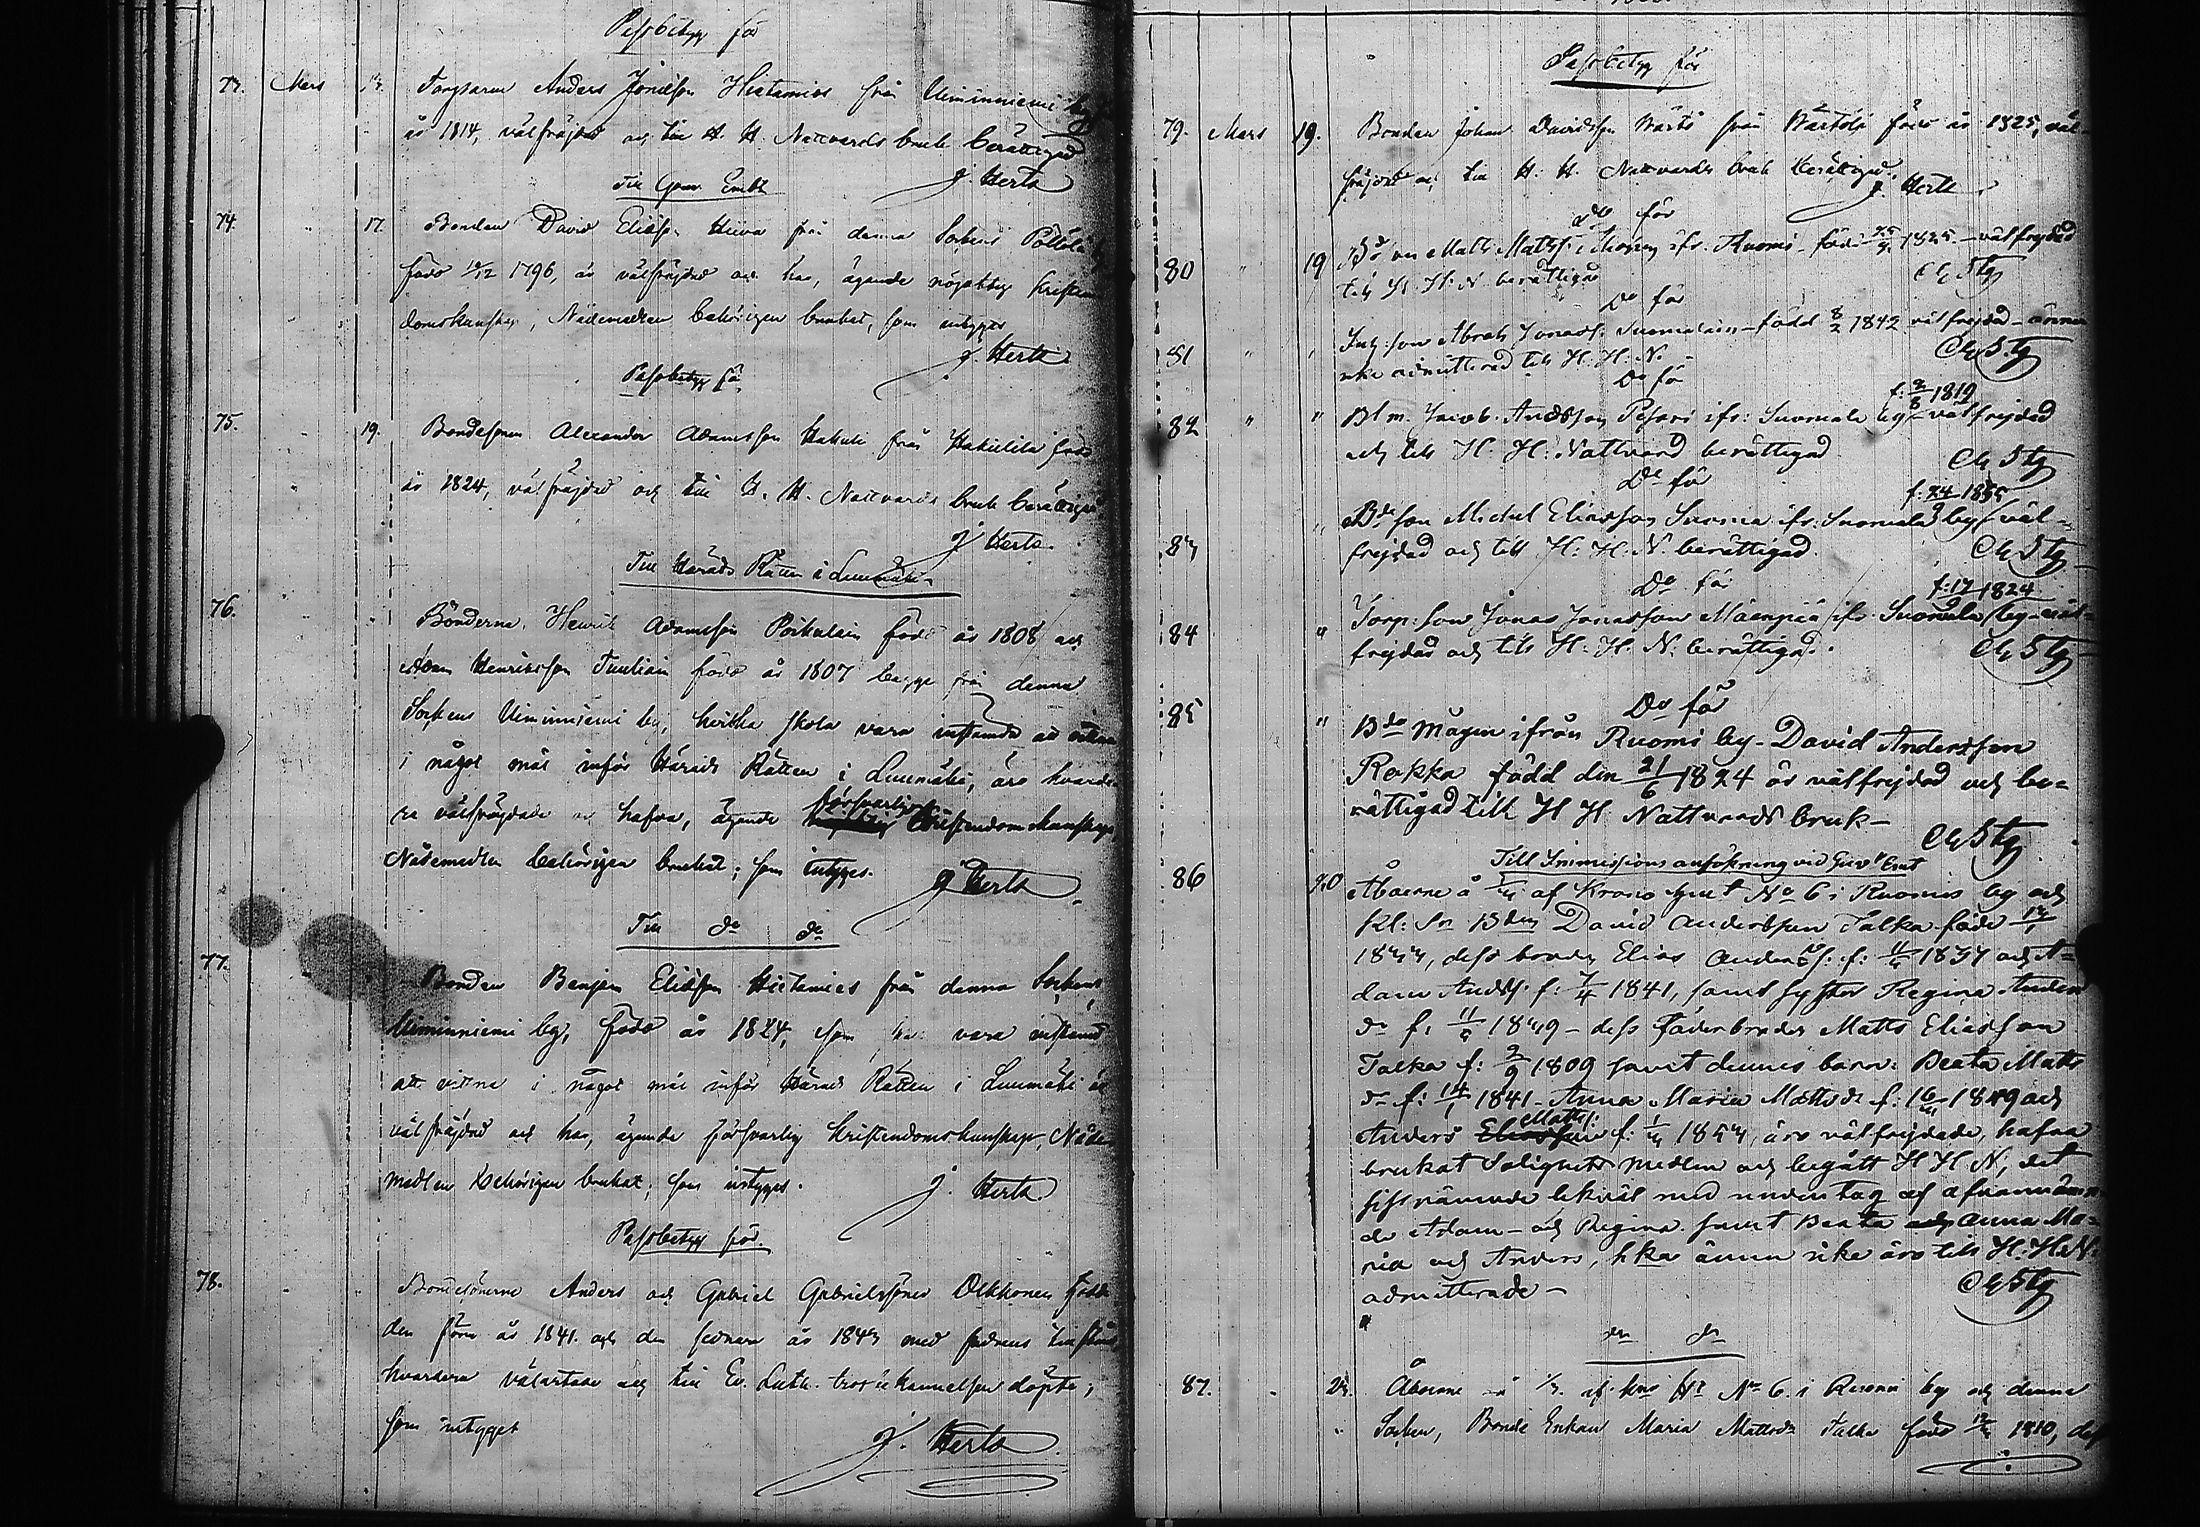 Passbetyg för
73. Mars 13. Torparen Anders Jönisson Hietamies från Uiminniemi by
år 1814, välfräjdad och till H. H. Nattvards bruk berättigad
J. Herts
Till Guv. Embt
74. " 17. Bonden David Eliæson Huuva från denna Sockens Pöllölä
född 10/12 1796, är välfräjdad och har, ägande nöjaktig kristen
domskunskap, Nådemedlen behörigen brukat, som intygas
J. Herts
Passbetyg för
75. " 19. Bondesonen Alexander Adamsson Hakuli från Hakulila född
år 1824, välfräjdad och till H. H. Nattvards bruk berättigad
J. Herts.
Till Härads Rätten i Luumäki
76. Bönderna Henrik Adamsson Poikalain född år 1808 och
Adam Henriksson Tuuliain född år 1807 begge från denna
Sockens Uiminniemi by, hvilka skola vara instämda att vittna
i något mål inför Härads Rätten i Luumäki, äro hvarde
ra välfräjdade och hafva, ägande försvarlig Christendomskunskap,
Nådemedlen behörigen brukat; som intygas.
J Herts
Till do do
77. Bonden Benjam Eliæson Hietamies från denna Sockens
Uiminniemi by, född år 1824, som har vara instämd
att vittna i något mål inför Härads Rätten i Luumäki är
välfräjdad och har, ägande försvarlig kristendomskunskap, Nåde
medlen behörigen brukat; som intygas.
J. Herts.
Passbetyg för.
78. " " Bondesönerne Anders och Gabriel Gabrielssöner Olkkonen född
den förre år 1841. och den sednare år 1843 med fadrens tillstånd
hvardera välartade och till Ev. Luth. trosbekännelsen döpte;
som intygas
J. Herts
Passbetyg för
79. Mars 19. Bonden Johan Davidsson Wärtö från Wärtölä född år 1825, väl-
fräjdad och till H. H. Nattvards bruk berättigad.
J. Herts.
Do för
80 " 19 Bden Matts Mattss: ifr. Ruomi - född 25/9 1825 - välfrejdad
till H. H. N. berättigad
Ch Stg
Do för
81 " " Inh: son Abrah Jonass: Suomalain - född 8/2 1842 välfrejdad - ännu
icke admitterad till H: H: N. -
Ch Stg
Do för
f: 3/8 1819
82 " " Blm. Jacob Andersson Pesari ifr: Suomala by välfrejdad
och till H: H: Nattvard berättigad
Ch Stg
Do för
f: 24/9 1835
83 " Bde son Michel Eliasson Suoma ifr. Suomala by väl-
frejdad och till H: H: N. berättigad.
Ch Stg
Do för
f: 17/9 1824
84 " Torp: son Jonas Jonasson Mäenpää ifr. Suomala by - väl-
frejdad och till H. H. N. berättigad.
Ch Stg
Do för
85 " Bde Mågen ifrån Ruomi by - David Andersson
Rokka född den 21/6 1824 är välfrejdad och be-
rättigad till H H. Nattvards bruk -
Ch Stg
Till Immissions ansökning vid Guvr Emt
86 20 Åboerne å af Krono Hmt No 6 i Ruomis by och
Kl: Sn Bden David Andersson Talka född
1833, dess broder Elias Anderss: f: 1837 och A-
dam Anderss: f: 7/4 1841, samt syster Regina Anders
dr f: 1839 - dess Faderbroder Matts Eliasson
Talka f: 2/9 1809 samt dennes barn: Beata Matts
dr f: 14/1 1841 - Anna Maria Mattsdr f: 1849 och
Anders Mattss: f: 1853, äro välfrejdade, hafva
brukat Salighets medlen och begått H H N, det
sistnämnde likväl med undantag af ofvannämn
de Adam - och Regina samt Beata Anna Ma-
ria och Anders, hka ännu icke äro till H: H: N.
admitterade -
Ch Stg
do do
87. " 23. Åboerne å 1/3. af Kno Ht No 6 i Ruomi by och denna
Socken, Bonde Enkan Maria Mattsdr Talka född 1810, dess